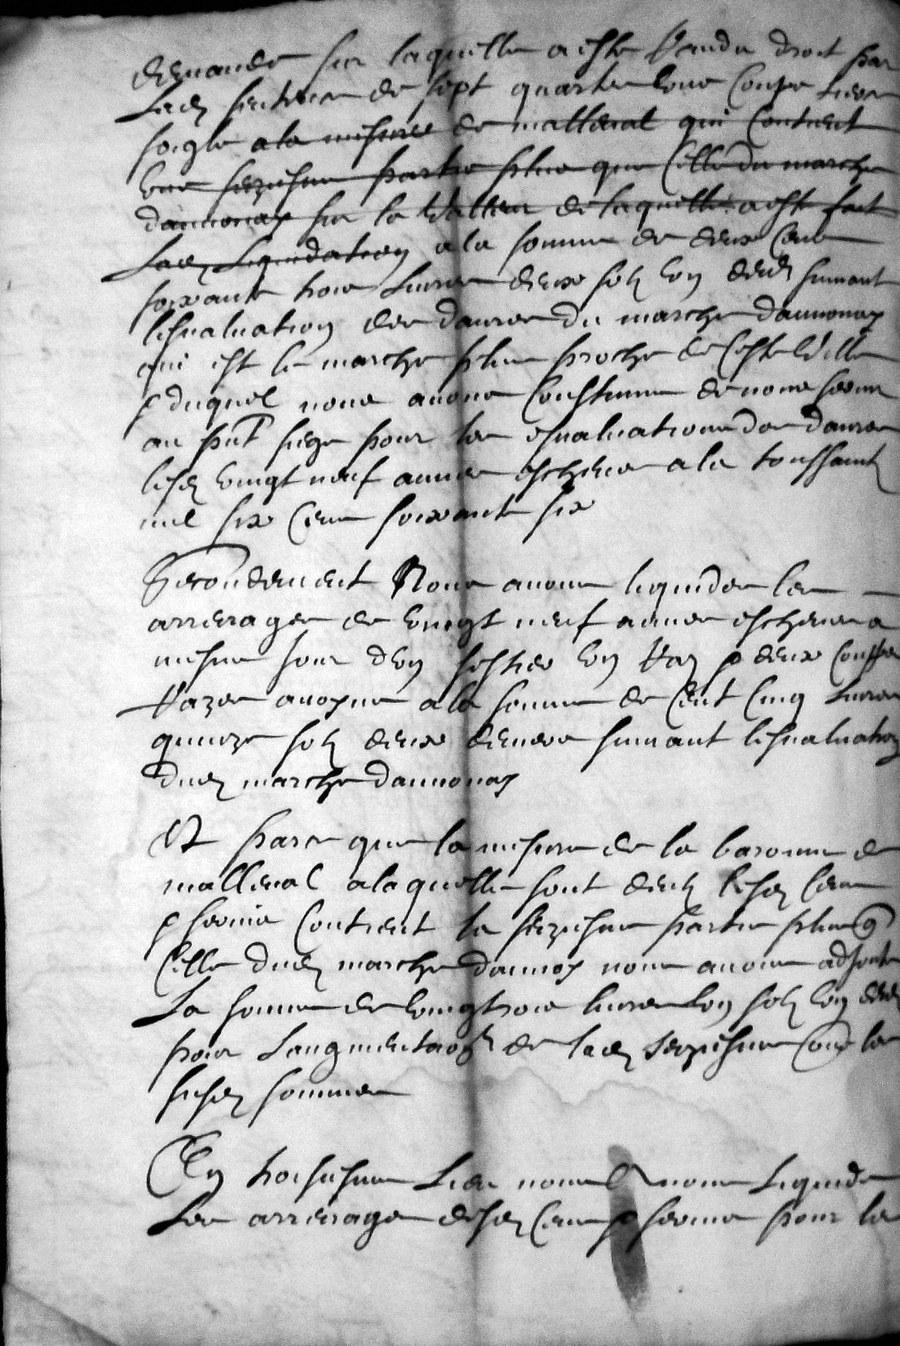 demande sur laquelle a esté rendu droit par
lad sentence de sept quartes une coupe tiers
soigle a la mesure de malleval qui contient
une sezziesme partie plus que celle du marche
dannonay sur la valleur de laquelle a esté fait
lad liquidation a la somme de deux cens
soixante trois livres deux solz un den suivant
lesvaluation des danrees du marche dannonay
qui est le marche plus proche de ceste ville
duquel nous avons coustume de nous servir
au pnt siege pour les esvaluations des danrees
lesd vingt neuf annees escheues a la toussaintz
mil six cens soixante six
Secondement Nous avons liquider les
arrerages de vingt neuf annees escheues a
mesme jour dun sestier un raz deux couppes
razes avoyne a la somme de cent cinq livres
quinze solz deux deniers suivant lesvaluation
dud marche dannonay
Et parce que la mesure de la baronnie de
malleval a laquelle sont deubz lesd cens
servis contient la sezziesme partie plus q
celle dud marche dannoy nous avons adjouté
La somme de vingt trois livres un solz un den
pour laugmentaon de lad sezziesme les
susd sommes
En troisiesme lieu nous liquide
Les arrerages desd cens servis pour le